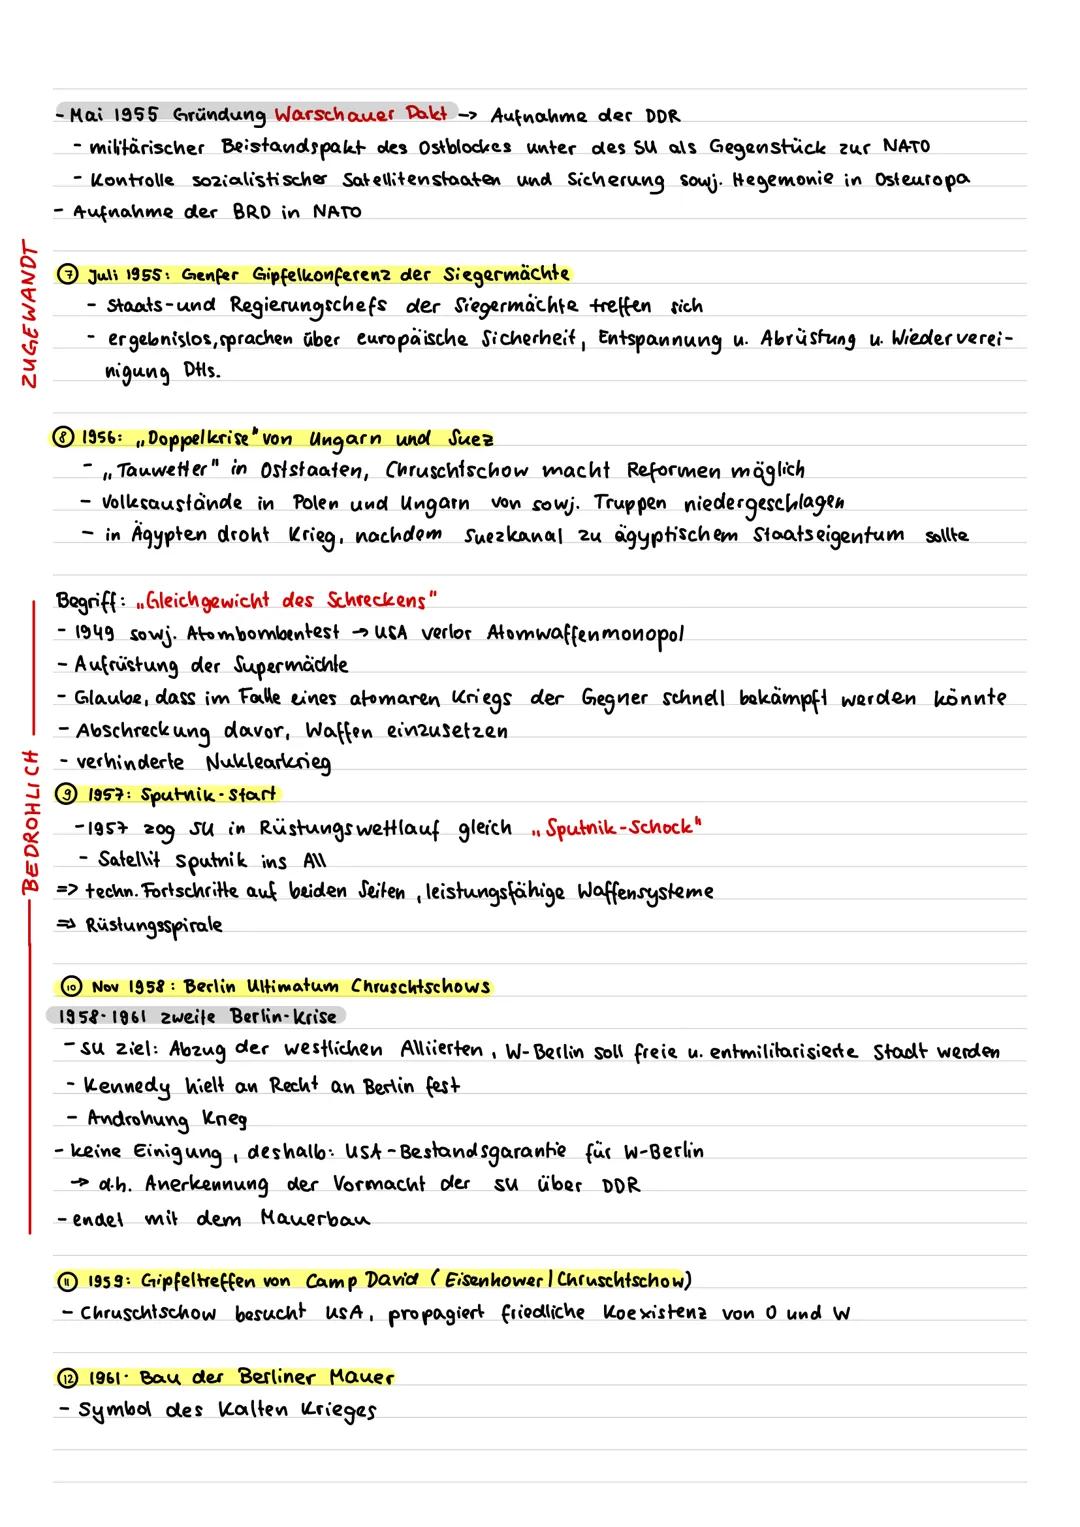 - Mai 1955 Gründung Warschauer Pakt -> Aufnahme der DDR
- militärischer Beistandspakt des Ostblockes unter des SU als Gegenstück zur NATO
- Kontrolle sozialistischer Satellitenstaaten und Sicherung sowj. Hegemonie in Osteuropa
- Aufnahme der BRD in NATO
ZUGEWANDT
⑦ Juli 1955: Genfer Gipfelkonferenz der Siegermächte
- Staats- und Regierungschefs der Siegermächte treffen sich
- ergebnislos, sprachen über europäische Sicherheit, Entspannung u. Abrüstung u. Wiederverei-
nigung Dtls.
⑧ 1956: „Doppelkrise" von Ungarn und Suez
- „Tauwetter" in Oststaaten, Chruschtschow macht Reformen möglich
- Volksaustände in Polen und Ungarn von sowj. Truppen niedergeschlagen
- in Ägypten droht Krieg, nachdem Suezkanal zu ägyptischem Staatseigentum sollte
BEDROHLICH
Begriff: „Gleichgewicht des Schreckens"
- 1949 sowj. Atombombentest → USA verlor Atomwaffenmonopol
- Aufrüstung der Supermächte
- Glaube, dass im Falle eines atomaren Kriegs der Gegner schnell bekämpft werden könnte
- Abschreckung davor, Waffen einzusetzen
- verhinderte Nuklearkrieg
⑨ 1957: Sputnik-Start
- 1957 zog SU in Rüstungswettlauf gleich „Sputnik-Schock"
- Satellit Sputnik ins All
=> techn. Fortschritte auf beiden Seiten, leistungsfähige Waffensysteme
=> Rüstungsspirale
⑩ Nov 1958: Berlin Ultimatum Chruschtschows
1958-1961 zweite Berlin-Krise
- SU Ziel: Abzug der westlichen Alliierten, W-Berlin soll freie u. entmilitarisierte Stadt werden
- Kennedy hielt an Recht an Berlin fest
- Androhung Krieg
- keine Einigung, deshalb: USA-Bestandsgarantie für W-Berlin
→ d.h. Anerkennung der Vormacht der SU über DDR
- endet mit dem Mauerbau
⑪ 1959: Gipfeltreffen von Camp David (Eisenhower | Chruschtschow)
- Chruschtschow besucht USA, propagiert friedliche Koexistenz von O und W
⑫ 1961: Bau der Berliner Mauer
- Symbol des Kalten Krieges